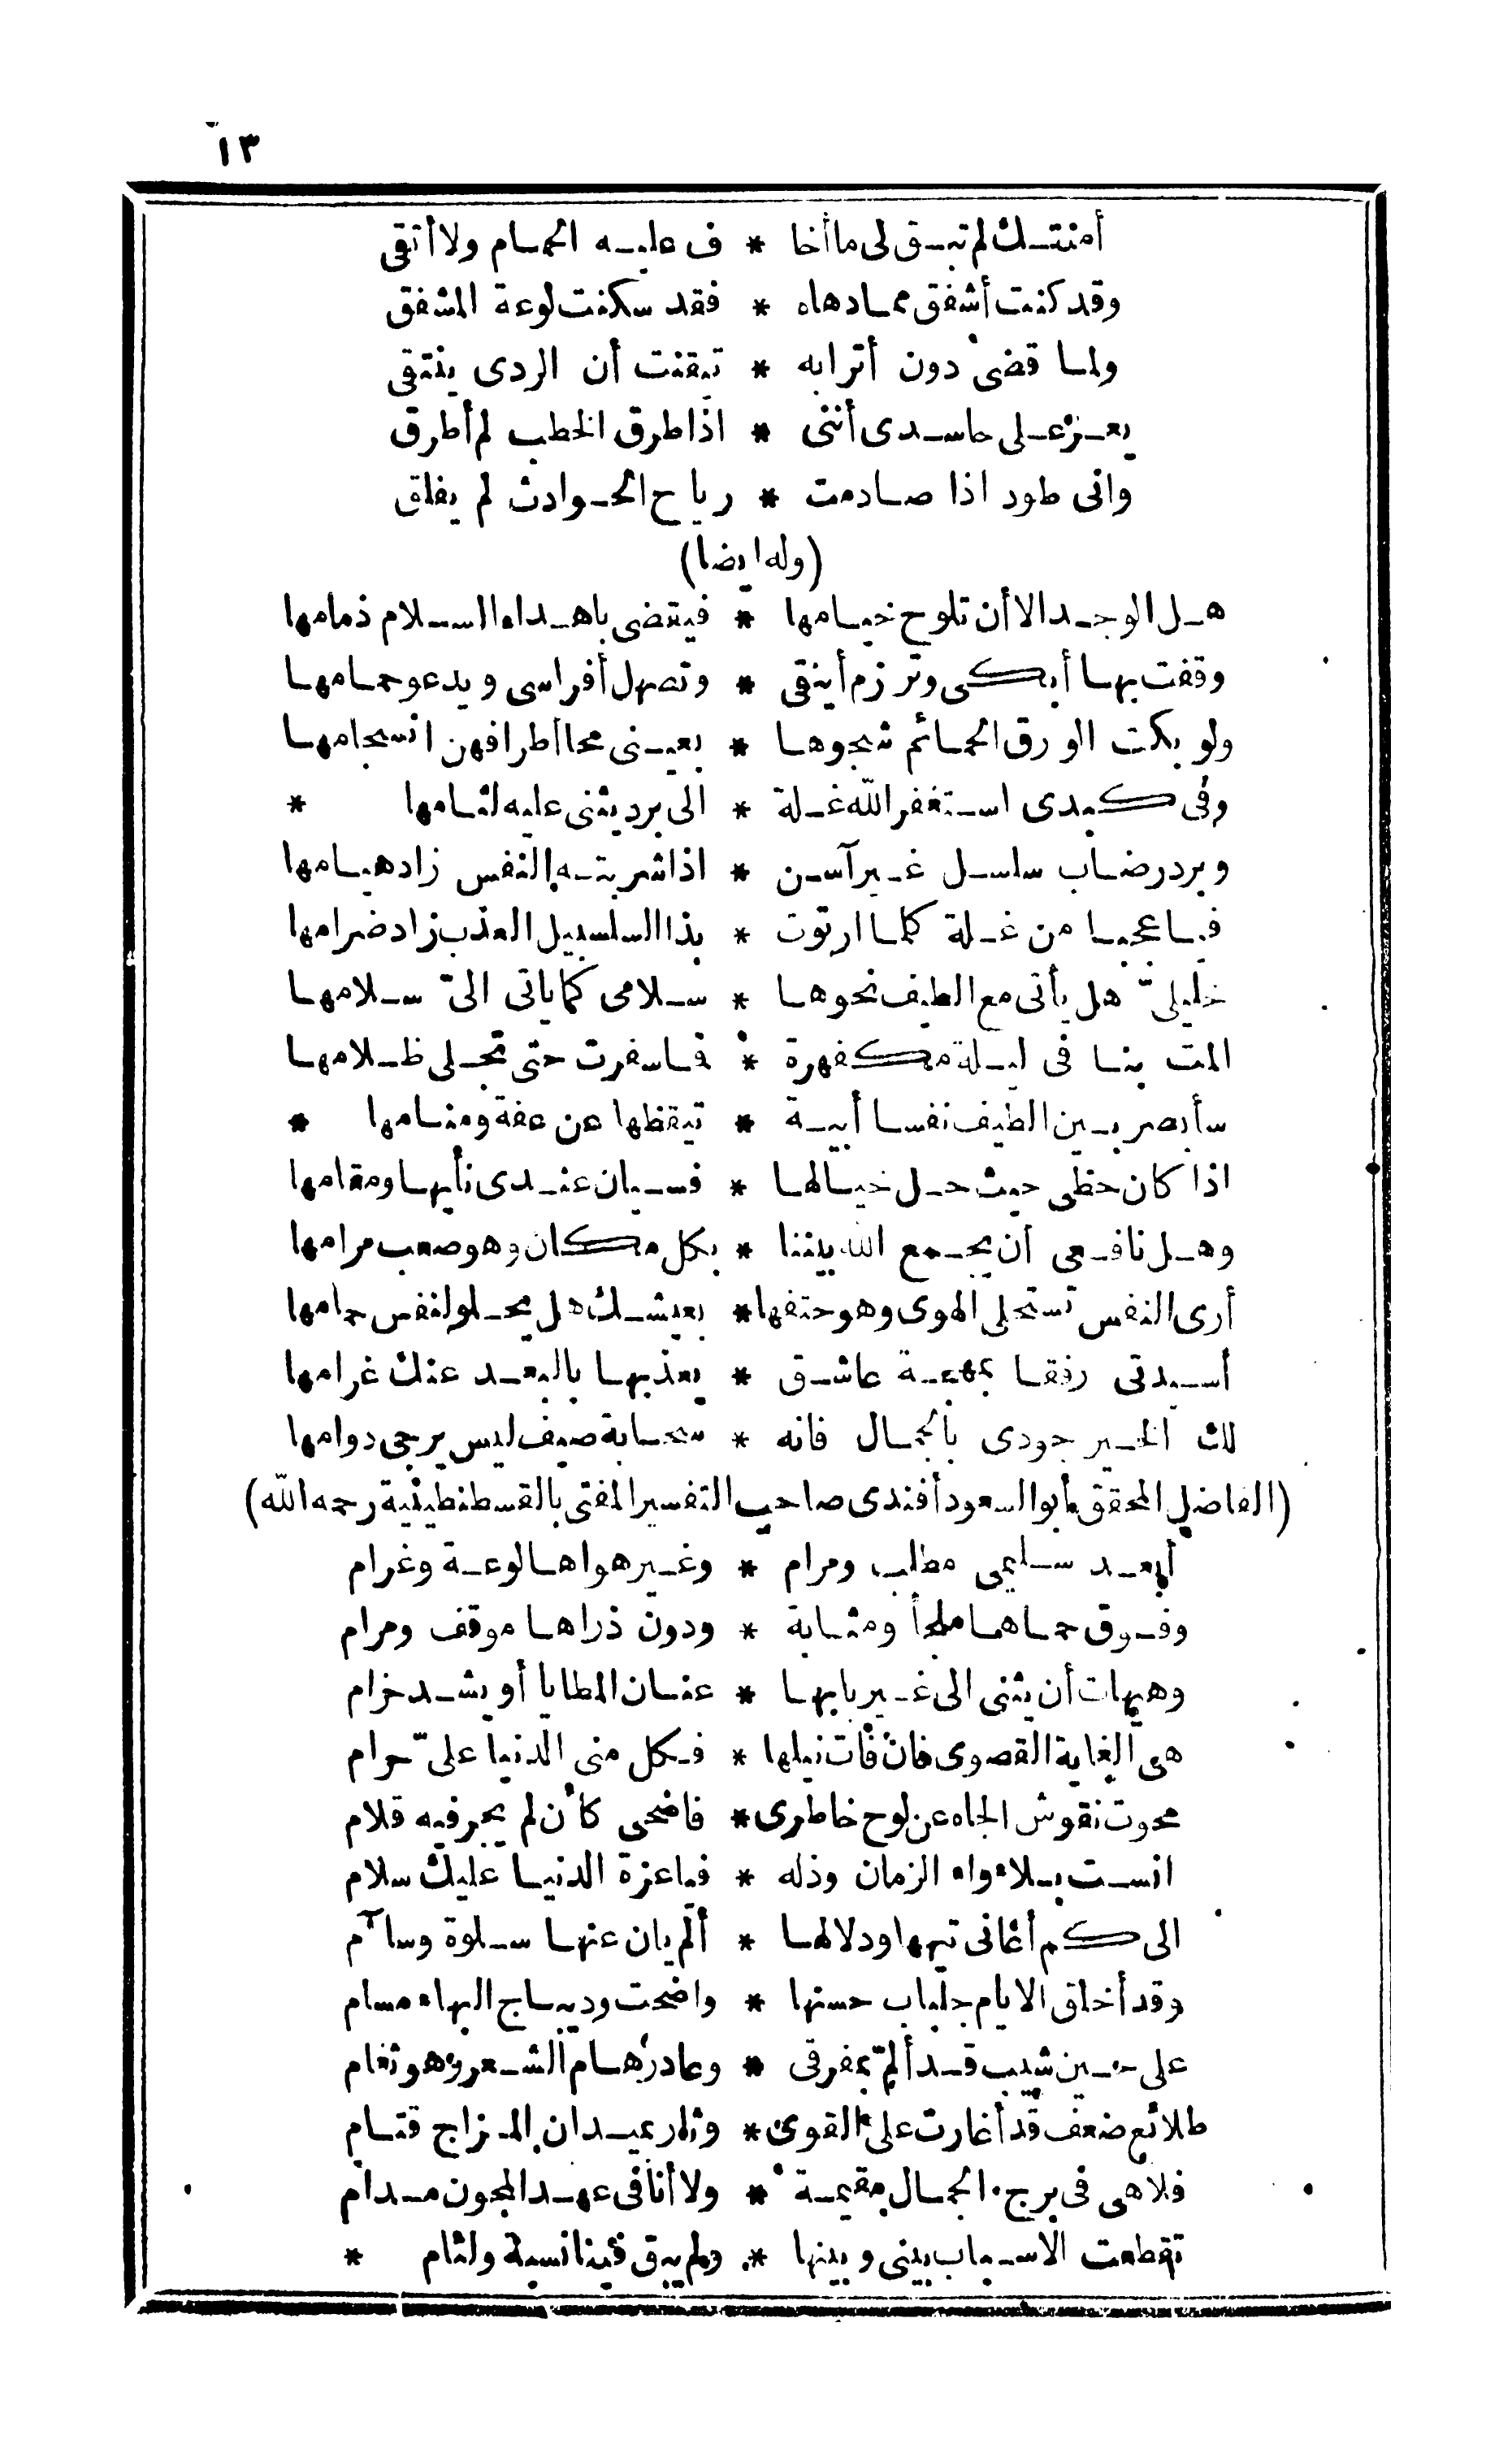 ١٣
أمنتك لم تبق لى ما أخا * ف عليه الحمام ولا أتقى
وقد كنت أشفق مما دهاه * فقد سكنت لوعة المشفق
ولما قضى دون أترابه * تيقنت أن الردى ينتقى
يعز على حاسدى أننى * اذا طرق الخطب لم أطرق
وانى طود اذا صادمت * رياح الحوادث لم يفلق
(وله ايضا)
هل الوجد الا أن تلوح خيامها * فيقضى باهداء السلام ذمامها
وقفت بها أبكى وترزم أينقى * وتصهل أفراسى ويدعو حمامها
ولو بكت الورق الحمائم شجوها * بعينى محا أطرافهن انسجامها
وفى كبدى استغفر الله غلة * الى برد يثنى عليه لثامها *
وبرد رضاب سلسل غير آسن * اذا شربته النفس زاد هيامها
فيا عجبا من غلة كلما ارتوت * بذا السلسبيل العذب زاد ضرامها
خليلىّ هل يأتى مع الطيف نحوها * سلامى كما ياتى الىّ سلامها
المت بنا فى ليلة مكفهرة * فاسفرت حتى تجلى ظلامها
سأبصر بين الطيف نفسا أبية * تيقظها عن عفة ومنامها *
اذا كان حظى حيث حل خيالها * فسيان عندى نأيها ومقامها
وهل نافعى أن يجمع الله بيننا * بكل مكان وهو صعب مرامها
أرى النفس تستحلى الهوى وهو حتفها * بعيشك هل يحلو لنفس حمامها
أسيدتى رفقا بمهجة عاشق * يعذبها بالبعد عنك غرامها
لك الخير جودى بالجمال فانه * سحابة صيف ليس يرجى دوامها
(الفاضل المحقق أبو السعود أفندى صاحب التفسير المفتى بالقسطنطينية رحمه الله)
أبعد سليمى مطلب ومرام * وغير هواها لوعة وغرام
وفوق حماها ملجأ ومثابة * ودون ذراها موقف ومرام
وهيهات أن يثنى الى غير بابها * عنان المطايا أو يشد خزام
هى الغاية القصوى فان فات نيلها * فكل منى الدنيا علىّ حرام
محوت نقوش الجاه عن لوح خاطرى * فاضحى كأن لم يجر فيه قلام
انست بلاءواه الزمان وذله * فيا عزة الدنيا عليك سلام
الى كم أعانى تيهها ودلالها * ألم يان عنها سلوة وسآم
وقد أخلق الايام جلباب حسنها * واضحت وديباج البهاء مسام
على حين شيب قد ألمّ بمفرقى * وعاد رهام الشعر وهو ثغام
طلائع ضعف قد أغارت على القوى * وثار بميدان المزاج قتام
فلا هى فى برج الجمال مقيمة * ولا أنا فى عهد المجون مدام
تقطعت الاسباب بينى وبينها * ولم يبق فينا نسبة ولئام *